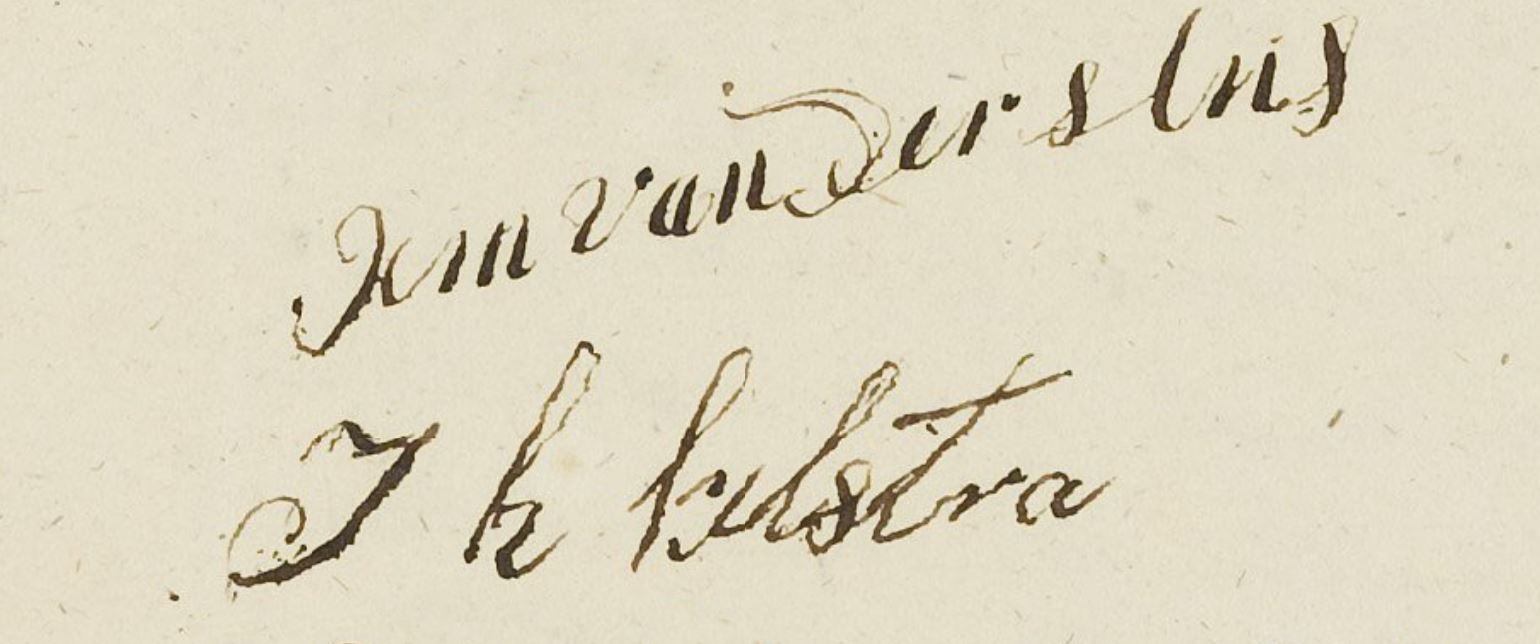 Jem van Der slus
J k kelstra